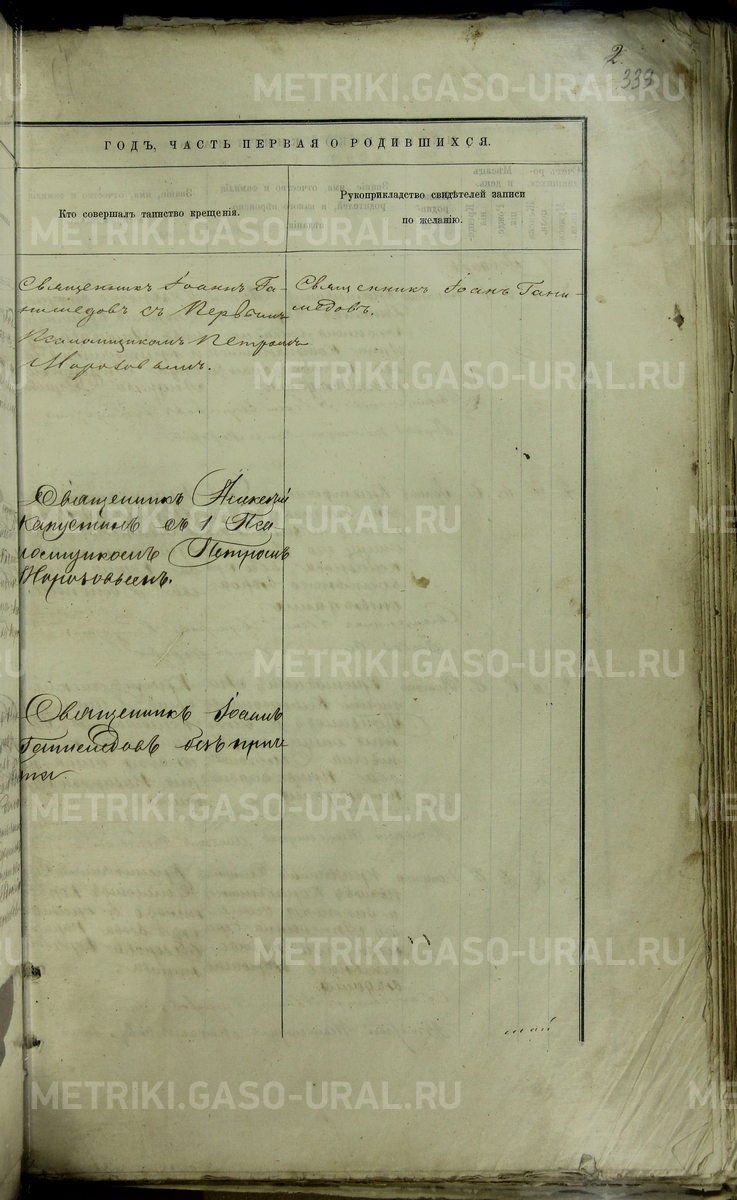 2.
333
ГОДЪ, ЧАСТЬ ПЕРВАЯ О РОДИВШИХСЯ.
Кто совершалъ таинство крещенія.
Рукоприкладство свидѣтелей записи
по желанію.
Священникъ Іоаннъ Га-
нимедовъ съ Первымъ
Псаломщикомъ Петромъ
Морозовымъ.
Священникъ Іоанъ Гани-
медовъ.
Священникъ
Капустинъ съ 1 Пса-
ломщикомъ Петромъ
Морозовымъ.
Священникъ Іоаннъ
Ганимедовъ безъ прич-
та.
METRIKI.GASO-URAL.RU
METRIKI.GASO-URAL.RU
METRIKI.GASO-URAL.RU
METRIKI.GASO-URAL.RU
METRIKI.GASO-URAL.RU
METRIKI.GASO-URAL.RU
METRIKI.GASO-URAL.RU
METRIKI.GASO-URAL.RU